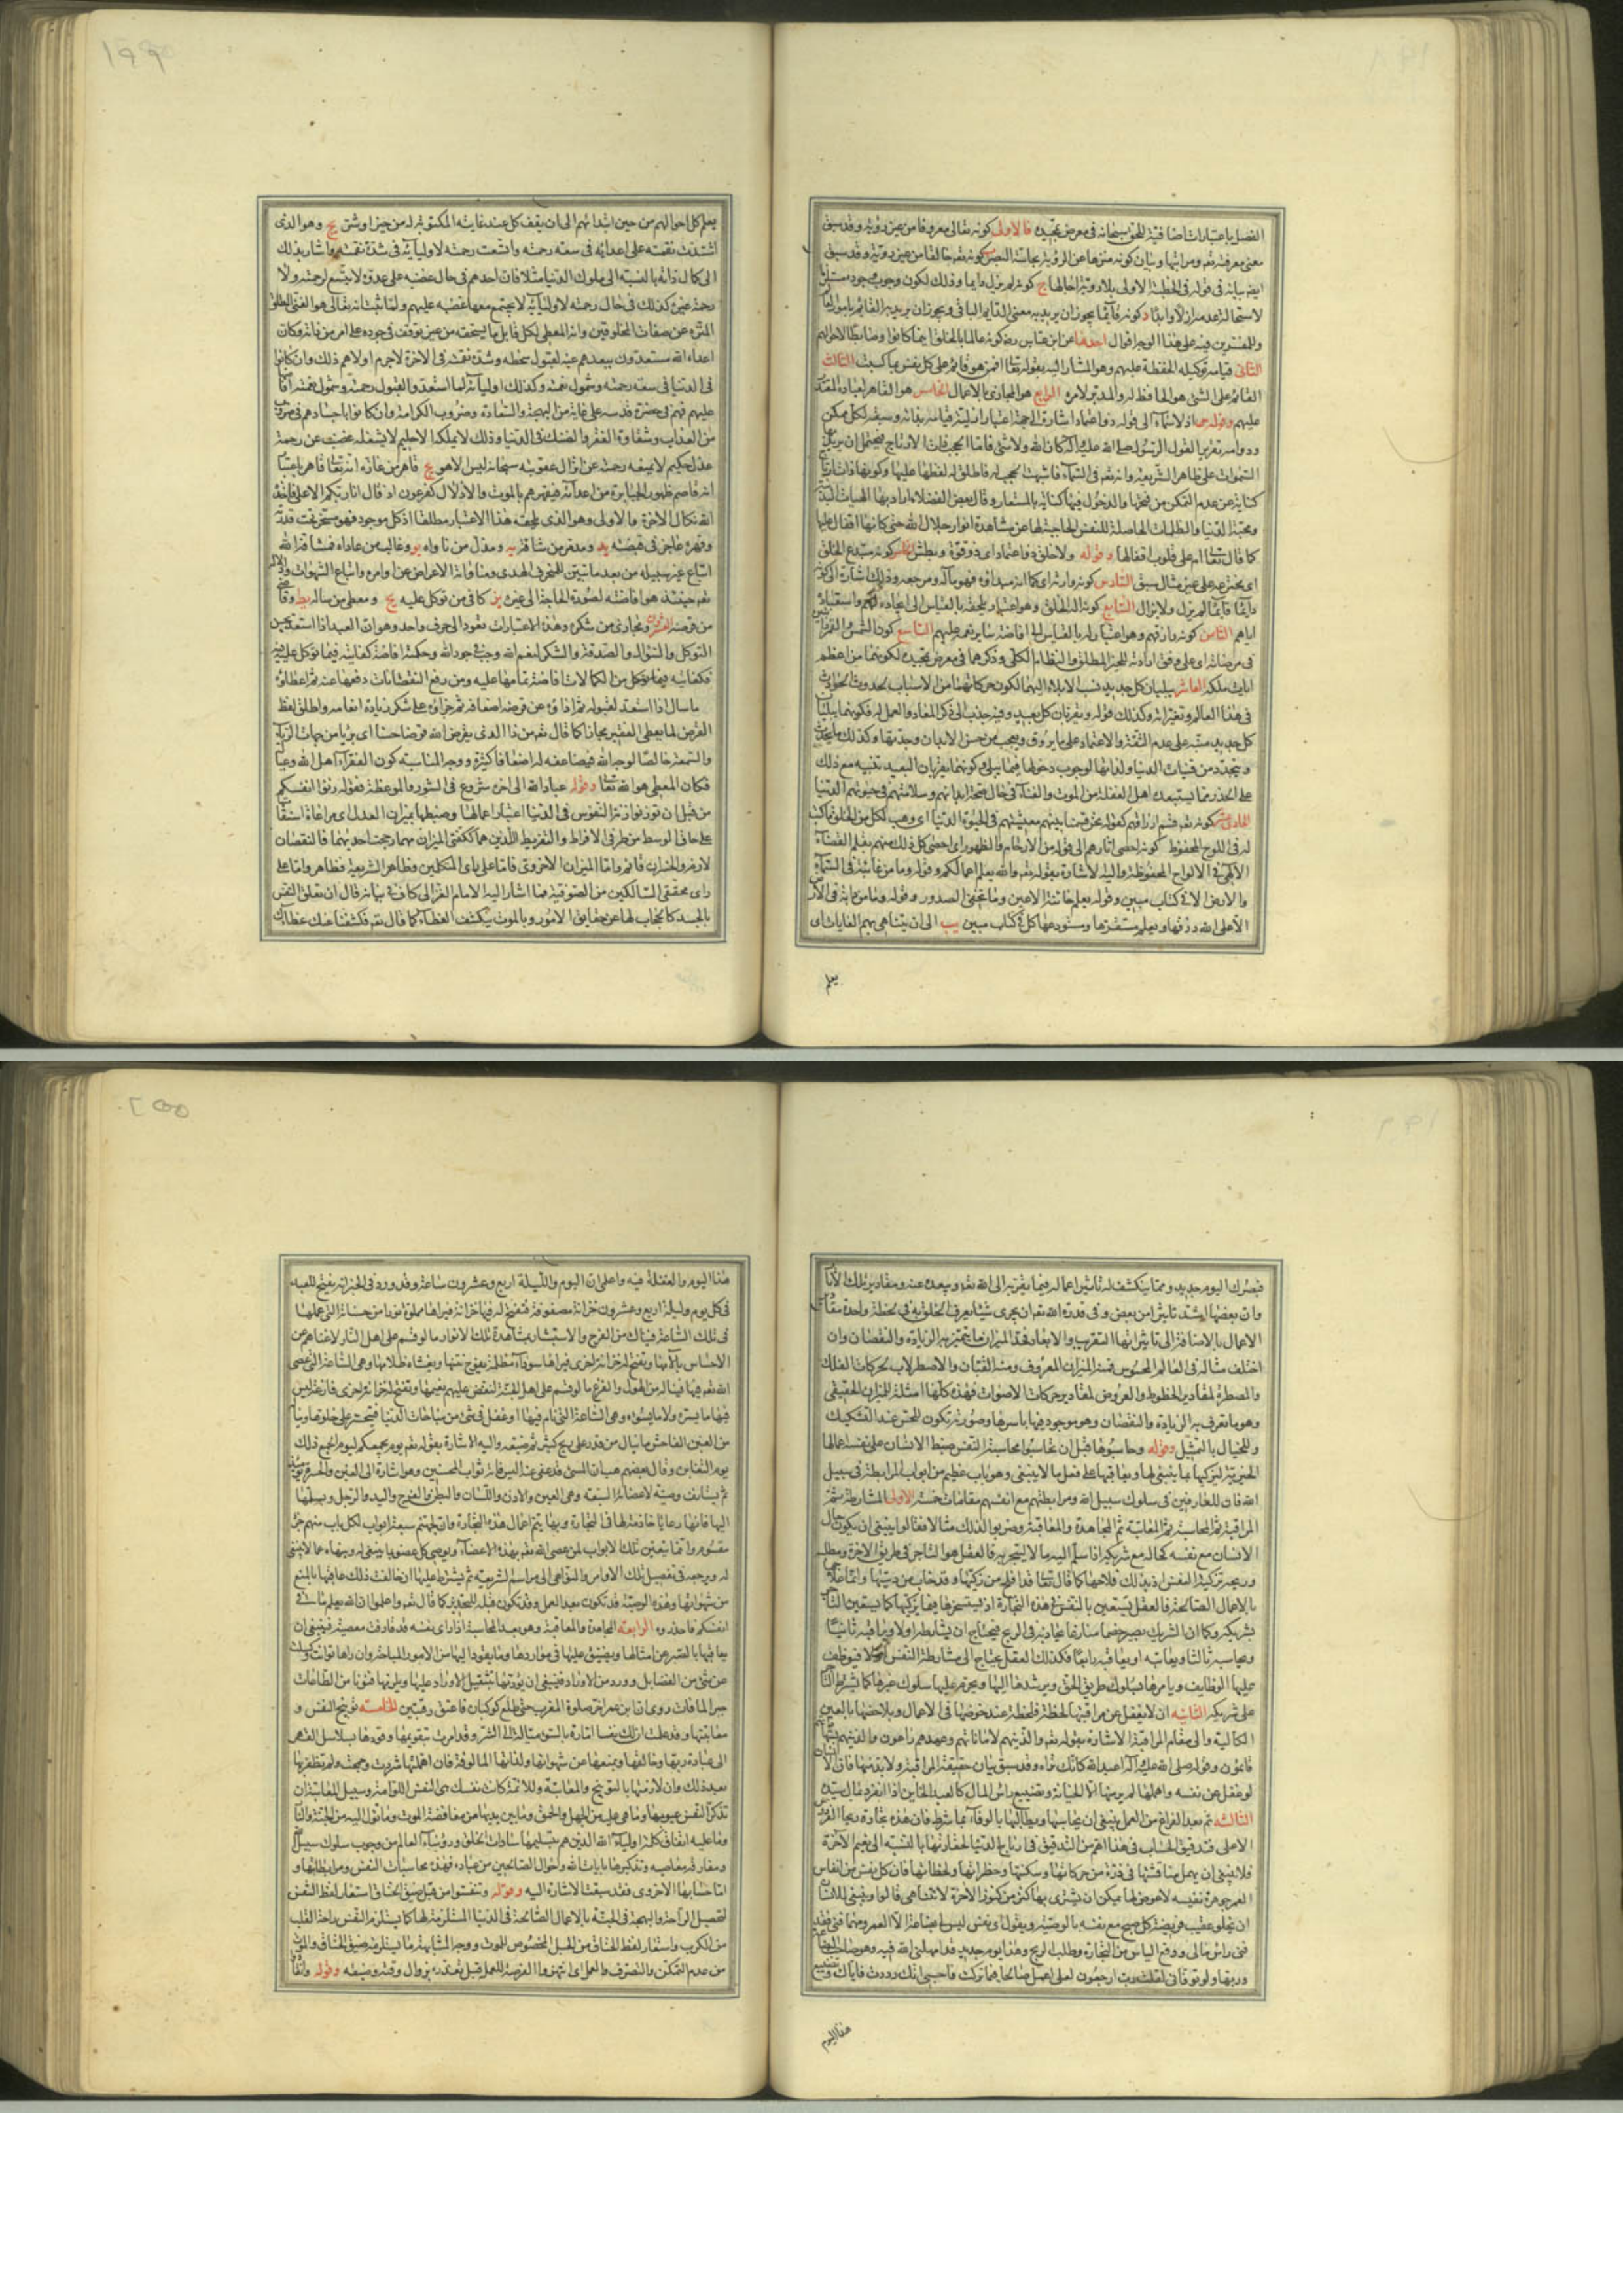 الفصل باعتبارات اضافية للحق سبحانه فى معرض تمجيده فالاولى كونه تعالى معروفا من غير رؤية وقد سبق
معنى معرفته تعه ومراتبها وبيان كونه منزها عن الرؤية بحاسة البصر ب كونه تعه خالقا من غير روية وقد سبق
ايضا بيانه فى قوله فى الخطبة الاولى بلا روية اجالها ج كونه لم يزل دايما وذلك لكون وجوب وجوده مستلزما
لاستحالة عدمه ازلا وابدا د كونه قائما يجوز ان يريد به معنى الدايم الباقى ويجوز ان يريد به القائم بامور العالم
وللمفسرين فيه على هذا الوجه اقوال احدها عن ابن عباس رضه كونه عالما بالخلق اينما كانوا وضابطا لاحوالهم
الثانى قيامه توكيله الحفظة عليهم وهو المشار اليه بقوله تعا افمن هو قائم على كل نفس بما كسبت الثالث
القائم على الشئ هو الحافظ له والمدبر لامره الرابع هو المجازى بالاعمال الخامس هو القاهر لعباده المقتدر
عليهم وقوله اذ لا سمآء الى قوله ذو اعتماد اشارة الى جهة اعتبار ازلية قيامه بذاته وسبقه لكل ممكن
ودوامه تقرير لقول الرسول صلى الله عليه وآله كان الله ولا شئ فاما الحجب ذات الارتاج فيحتمل ان يريد بها
السموات على ظاهر الشريعة وانه تعه فى السمآء فاشبهت الحجب له فاطلق لفظها عليها وكونها ذات ارتاج
كناية عن عدم التمكن من فتحها والدخول فيها كناية بالمستعار وقال بعض الفضلاء اراد بها الهيات البدنية
ومحبة الدنيا والظلمات الحاصلة للنفس الحاجبة لها عن مشاهدة انوار جلال الله حتى كانها اقفال عليها
كما قال تعا ام على قلوب اقفالها وقوله ولا خلق ذو اعتماد اى ذو قوة وبطش كونه مبتدع الخلق
اى مخترعه على غير مثال سبق السادس كونه وارثه اى كما انه مبداؤه فهو مآله ومرجعه وذلك اشارة الى كونه
دايما قائما لم يزل ولا يزال السابع كونه اله الخلق وهو اعتبار يلحقه بالقياس الى ايجاده لهم واستعباده
اياهم الثامن كونه رازقهم وهو اعتبار له بالقياس الى افاضة ساير نعمه عليهم التاسع كون الشمس والقمر
فى مرضاته اى على وفق ارادته للخير المطلق والنظام الكلى وذكرهما فى معرض تمجيده لكونهما من اعظم
ايات ملكه العاشر يبليان كل جديد نسب الابلاء اليهما لكون حركاتهما من الاسباب لحدوث الحوادث
فى هذا العالم وتغيراته وكذلك قوله ويقربان كل بعيد وفيه جذب الى ذكر المعاد والعمل له فكونهما يبليان
كل جديد منبه على عدم الثقة والاعتماد على ما يروق ويعجب من حسن الابدان وجدتها وكذلك ما يحدث
ويتجدد من قنيات الدنيا ولذاتها لوجوب دخولها فيما يبلى وكونهما يقربان البعيد تنبيه مع ذلك
على الحذر مما يستبعده اهل الغفلة من الموت والفنآء فى حال صحة ابدانهم وسلامتهم فى حيوتهم الدنيا
الحادى عشر كونه تعه قسم ارزاقهم كقوله نحن قسمنا بينهم معيشتهم فى الحيوة الدنيا اى وهب لكل من الخلق ما كتب
له فى اللوح المحفوظ كونه احصى اثارهم الى قوله من الارحام والظهور اى احصى كل ذلك منهم بقلم القضآء
الآلهى فى الالواح المحفوظة واليه الاشارة بقوله تعه والله يعلم اعمالكم وقوله وما من غائبة فى السمآء
والارض الا فى كتاب مبين وقوله يعلم خائنة الاعين وما تخفى الصدور وقوله وما من دابة فى الارض
الا على الله رزقها ويعلم مستقرها ومستودعها كل فى كتاب مبين يب الى ان يتناهى بهم الغايات اى
يعلم
١٩٩
يعلم كل احوالهم من حين ابتدائهم الى ان يقف كل عند غايته المكتوبة له من خير او شر يج وهو الذى
اشتدت نقمته على اعدائه فى سعة رحمته واتسعت رحمته لاوليآئه فى شدة نقمته واشار بذلك
الى كمال ذاته بالنسبة الى ملوك الدنيا مثلا فان احدهم فى حال غضبه على عدوه لا يتسع لرحمته ولا
رحمة غيره كذلك فى حال رحمته لاوليآئه لا يجتمع معها غضبه عليهم ولما ثبت انه تعالى هو الغنى المطلق
المنزه عن صفات المخلوقين وانه المعطى لكل قابل ما يستحقه من غير توقف فى وجوده على امر من ذاته وكان
اعداء الله مستعدون ببعدهم عنه لقبول سخطه وشدة نقمته فى الاخرة لاجرم اولاهم ذلك وان كانوا
فى الدنيا فى سعة رحمته وشمول نعمته وكذلك اوليآئه لما استعدوا لقبول رحمته وشمول نعمته افاضها
عليهم فهم فى حضرة قدسه على غاية من البهجة والسعادة وضروب الكرامة وان كانوا باجسادهم فى ضروب
من العذاب وشقاوة الفقر والضنك فى الدنيا وذلك لا يملكه الا حليم لا يشغله غضب عن رحمة
عدل حكيم لا يمنعه رحمته عن انزال عقوبته سبحانه ليس الا هو قاهر من عازه انه تعا قاهر باعتبار
انه قاصم ظهور الجبابرة من اعدآئه فيقهرهم بالموت والاذلال كفرعون اذ قال انا ربكم الاعلى فاخذه
الله نكال الاخرة والاولى وهو الذى يلحقه هذا الاعتبار مطلقا اذ كل موجود فهو مسخر تحت قدرته
وقهره عاجز فى قبضته يد ومدمر من شاقه يه ومذل من ناواه يو وغالب من عاداه فمشاقة الله
اتباع غير سبيله من بعد ما تبين للمنحرف الهدى ومناواته الاعراض عن اوامره واتباع الشهوات
تعه حينئذ هو افاضته لصورة الحاجة الى غيره يز كافى من توكل عليه يح ومعطى من ساله يط وقاضى
من قرضه العشرون ومجازى من شكره وهذه الاعتبارات تعود الى حرف واحد وهو ان العبد اذا استعد بحسن
التوكل والسؤال والصدقة والشكر لنعم الله وجب فى جود الله وحكمته افاضة كفايته فيما توكل عليه فيه
فكفايته فيما توكل من الكمالات افاضة تمامها عليه ومن رفع النقصانات دفعها عنه ثم اعطاؤه
ما سال اذا استعد لقبوله ثم اداؤه عن قرضه اضعافه ثم جزاؤه على شكره زيادة انعامه واطلق لفظ
القرض لما يعطى الفقير مجازا كما قال تعه من ذا الذى يقرض الله قرضا حسنا اى بريا من جهات الريآء
والسمعة خالصا لوجه الله فيضاعفه له اضعافا كثيرة ووجه المناسبة كون الفقرآء اهل الله وعياله
فكان المعطى هو الله تعا وقوله عباد الله الى اخره شروع فى المشورة والموعظة فقوله زنوا انفسكم
من قبل ان توزنوا زنة النفوس فى الدنيا اعتبار اعمالها وضبطها بميزان العدل اى مراعاة استقامتها
على حاق الوسط من طرفى الافراط والتفريط اللذين هما ككفتى الميزان مهما رجحت احديهما فالنقصان
لازم والخسران قائم واما الميزان الاخروى فاما على راى المتكلمين وظاهر الشريعة فظاهر واما على
راى محققى السالكين من الصوفية فما اشار اليه الامام الغزالى كاف فى بيانه قال ان تعلق النفس
بالجسد كالحجاب لها عن حقايق الامور وبالموت ينكشف الغطآء كما قال تعه فكشفنا عنك غطاءك
فبصرك اليوم حديد ومما ينكشف له تاثير اعماله فيما يقربه الى الله تعه ويبعده عنه ومقادير تلك الآثار
وان بعضها اشد تاثيرا من بعض وفى قدرة الله تعه ان يجرى شيئا يعرف الخلق به فى لحظة واحدة مقادير
الاعمال بالاضافة الى تاثيراتها بالتقريب والابعاد فحد الميزان ما يتميز به الزيادة والنقصان وان
اختلف مثاله فى العالم المحسوس فمنه الميزان المعروف ومنه القبان والاصطرلاب لحركات الفلك
والمسطرة لمقادير الخطوط والعروض لمقادير حركات الاصوات فهذه كلها امثلة للميزان الحقيقى
وهو ما تعرف به الزيادة والنقصان وهو موجود فيها باسرها وصورته تكون للحس عند التشكيك
وللخيال بالتمثيل وقوله وحاسبوها قبل ان تحاسبوا محاسبة النفس ضبط الانسان على نفسه اعمالها
الخيرية ليزكيها بما ينبغى لها ويعاقبها على فعل ما لا ينبغى وهو باب عظيم من ابواب المرابطة فى سبيل
الله فان للعارفين فى سلوك سبيل الله ومرابطتهم مع انفسهم مقامات خمسة الاولى المشارطة ثم
المراقبة ثم المحاسبة ثم المعاتبة ثم المجاهدة والمعاقبة وضربوا لذلك مثالا فقالوا ينبغى ان يكون حال
الانسان مع نفسه كحاله مع شريكه اذا سلم اليه مالا ليتجر به فالعقل هو التاجر فى طريق الاخرة ومطلبه
وربحه تزكية النفس اذ بذلك فلاحها كما قال تعا قد افلح من زكيها وقد خاب من دسيها وانما علاجها
بالاعمال الصالحة فالعقل يستعين بالنفس فى هذه التجارة اذ يستسخرها فيما يزكيها كما يستعين التاجر
بشريكه وكما ان الشريك يصير خصما منازعا يجاذبه فى الربح فيحتاج ان يشارطه اولا ويراقبه ثانيا
ويحاسبه ثالثا ويعاتبه او يعاقبه رابعا فكذلك العقل يحتاج الى مشارطة النفس اولا فيوظف
عليها الوظايف ويامرها بسلوك طريق الحق ويرشدها اليها ويحرم عليها سلوك غيرها كما يشترط التاجر
على شريكه الثانية ان لا يغفل عن مراقبتها لحظة فلحظة عند خوضها فى الاعمال ويلاحظها بالعين
الكالئة والى مقام المراقبة الاشارة بقوله تعه والذين هم لاماناتهم وعهدهم راعون والذين هم بشهاداتهم
قائمون وقوله صلى الله عليه وآله اعبد الله كانك تراه وقد سبق بيان حقيقة المراقبة ولا بد منها فان الانسان
لو غفل عن نفسه واهملها لم ير منها الا الخيانة وتضييع راس المال كالعبد الخاين اذا انفرد بمال سيده
الثالثة ثم بعد الفراغ من العمل ينبغى ان يحاسبها ويطالبها بالوفآء بما شرط فان هذه تجارة ربحها الفردوس
الاعلى فتدقيق الحساب فى هذا اهم من التدقيق فى ارباح الدنيا لحقارتها بالنسبة الى نعيم الآخرة
فلا ينبغى ان يهمل مناقشتها فى ذرة من حركاتها وسكنتها وخطراتها ولحظاتها فان كل نفس من انفاس
العمر جوهرة نفيسة لا عوض لها يمكن ان يشترى بها كنز من كنوز الآخرة لا يتناهى قالوا وينبغى للانسان
ان يخلو عقيب فريضة كل صبح مع نفسه بالوصية ويقول اى نفس ليس لى بضاعة الا العمر ومهما فنى فقد
فنى راس مالى ووقع الياس من التجارة وطلب الربح وهذا يوم جديد قد امهلنى الله فيه وهو صاحب البضاعة
وربها ولو توفانى لقلت رب ارجعون لعلى اعمل صالحا فيما تركت فاحسبى انك رددت فاياك وتضييع
هذا اليوم
٢٠٠
هذا اليوم والغفلة فيه واعلمى ان اليوم والليلة اربع وعشرون ساعة وقد ورد فى الخبر انه يفتح للعبد
فى كل يوم وليلة اربع وعشرون خزانة مصفوفة فتفتح له فيها خزانة فيراها مملوة نورا من حسناته التى عملها
فى تلك الساعة فيناله من الفرح والاستبشار بمشاهدة تلك الانوار ما لو قسم على اهل النار لاغناهم عن
الاحساس بآلامها وتفتح له خزانة اخرى فيراها سودآء مظلمة يفوح نتنها ويغشاه ظلامها وهى الساعة التى عصى
الله تعه فيها فيناله من الهول والفزع ما لو قسم على اهل الجنة لنغص عليهم نعيمها وتفتح له خزانة اخرى فارغة ليس
فيها ما يسره ولا ما يسوءه وهى الساعة التى نام فيها او غفل فى شئ من مباحات الدنيا فيتحسر على خلوها ويناله
من الغبن الفاحش ما ينال من قدر على ربح كثير ثم ضيعه واليه الاشارة بقوله تعه يوم يجمعكم ليوم الجمع ذلك
يوم التغابن وقال بعضهم هب ان المسئ قد عفى عنه اليس فاته ثواب المحسنين وهو اشارة الى الغبن والحسرة يومئذ
ثم يستانف وصيته لاعضائه السبعة وهى العين والاذن واللسان والبطن والفرج واليد والرجل ويسلمها
اليها فانها رعايا خادمة لها فى التجارة وبها يتم اعمال هذه التجارة وان لجهنم سبعة ابواب لكل باب منهم جزء
مقسوم وانما يتعين تلك الابواب لمن عصى الله تعه بهذه الاعضآء ويوصى كل عضو بما ينبغى له وينهاه عما لا ينبغى
له ويرجعه فى تفصيل تلك الاوامر والنواهى الى مراسم الشريعة ثم يشترط عليها ان خالفت ذلك عاقبها بالمنع
من شهواتها وهذه الوصية قد تكون بعد العمل وقد تكون قبله للتحذير كما قال تعه واعلموا ان الله يعلم ما فى
انفسكم فاحذروه الرابعة المجاهدة والمعاقبة وهو بعد المحاسبة اذا راى نفسه قد قارفت معصية فينبغى ان
يعاقبها بالصبر عن امثالها ويضيق عليها فى مواردها وما يقود اليها من الامور المباحة وان راها توانت وكسلت
عن شئ من الفضايل وورد من الاوراد فينبغى ان يؤدبها بتثقيل الاوراد عليها ويلزمها فنونا من الطاعات
جبرا لما فات روى ان ابن عمر اخر صلوة المغرب حتى طلع كوكبان فاعتق رقبتين الخامسة توبيخ النفس و
معاتبتها وقد علمت ان لك نفسا امارة بالسوء ميالة الى الشر وقد امرت بتقويمها وقودها بسلاسل القهر
الى عبادة ربها وخالقها وبمنعها عن شهواتها ولذاتها المالوفة فان اهملتها شردت وجمحت ولم تظفر بها
بعد ذلك وان لازمتها بالتوبيخ والمعاتبة واللائمة كانت نفسك هى النفس اللوامة وسبيل المعاتبة ان
تذكر النفس عيوبها وما هى عليه من الجهل والحمق وما بين يديها من مغافصة الموت وما تؤول اليه من الجنة والنار
وما عليه اتفاق كلمة اوليآء الله الذين هم بتسليمها سادات الخلق ورؤسآء العالم من وجوب سلوك سبيل الله
ومفارقة معاصيه وتذكيرها بايات الله واحوال الصالحين من عباده فهذه محاسبات النفس ومرابطتها و
اما حسابها الاخروى فقد سبقت الاشارة اليه وقوله وتنفسوا من قبل ضيق الخناق استعار لفظ التنفس
لتحصيل الراحة والبهجة فى الجنة بالاعمال الصالحة فى الدنيا المستلزمة لها كما يستلزم النفس راحة القلب
من الكرب واستعار لفظ الخناق من الحبل المخصوص للموت ووجه المشابهة ما يستلزمه ضيق الخناق والموت
من عدم التمكن والتصرف والعمل اى انتهزوا الفرصة للعمل قبل تعذره بزوال وقته وضيقه وقوله وانقادوا